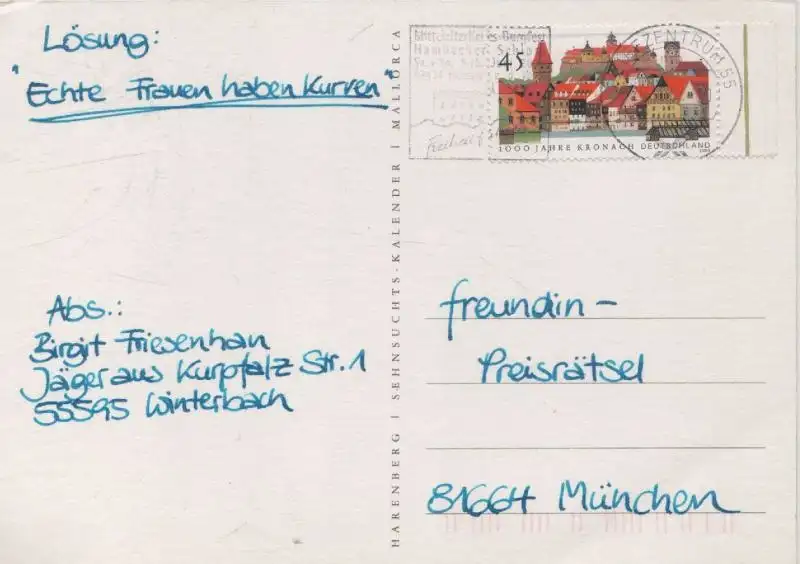 Lösung:
"Echte Frauen haben Kurven"
Abs.:
Birgit Friesenhan
Jäger aus Kurpfalz Str. 1
55595 Winterbach
HARENBERG | SEHNSUCHTS-KALENDER | MALLORCA
45
1000 JAHRE KRONACH DEUTSCHLAND
ZENTRUM 55
freundin-
Preisrätsel
81664 München